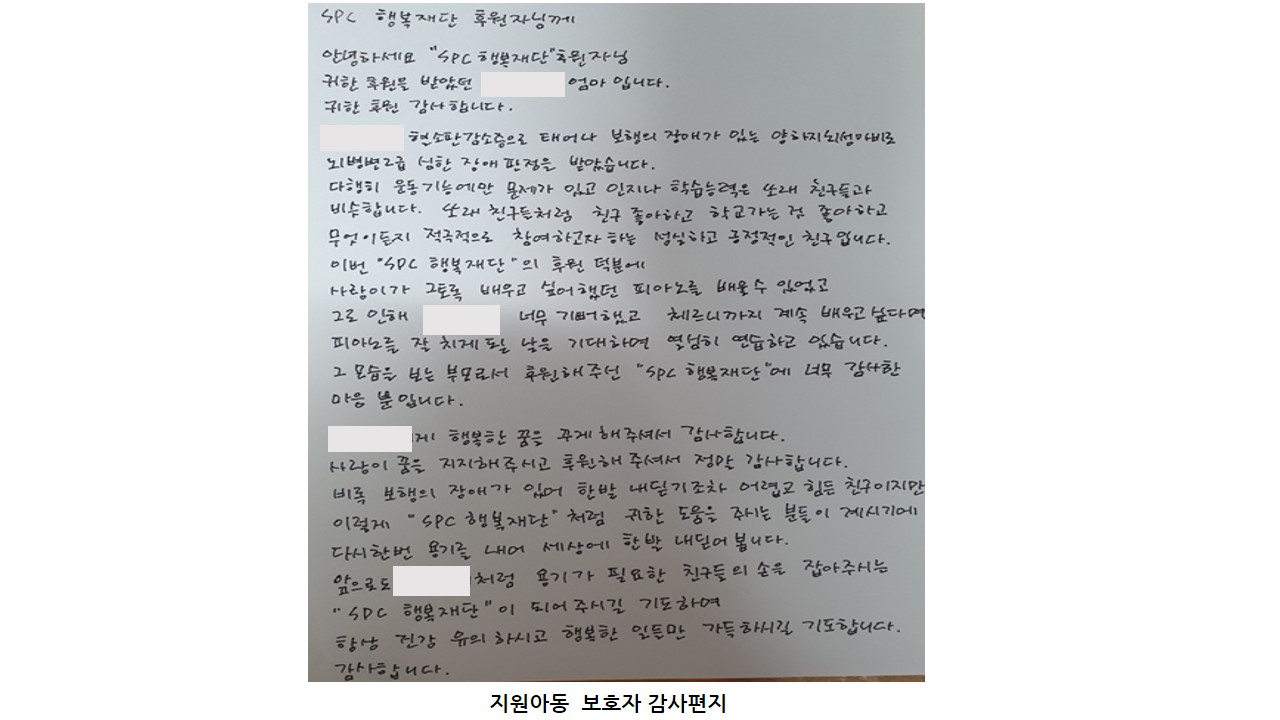 SPC 행복재단 후원자님께
안녕하세요 "SPC 행복재단"후원자님
귀한 후원을 받았던 엄마 입니다.
귀한 후원 감사합니다.
혈소판감소증으로 태어나 보행의 장애가 있는 양하지뇌성마비로
뇌병변2급 심한 장애 판정을 받았습니다.
다행히 운동기능에만 문제가 있고 인지나 학습능력은 또래 친구들과
비슷합니다. 또래 친구들처럼 친구 좋아하고 학교가는 것 좋아하고
무엇이든지 적극적으로 참여하고자 하는 성실하고 긍정적인 친구입니다.
이번 "SPC 행복재단"의 후원 덕분에
사랑이가 그토록 배우고 싶어했던 피아노를 배울수 있었고
그로 인해 너무 기뻐했고 체르니까지 계속 배우고 싶다며
피아노를 잘 치게 될 날을 기대하며 열심히 연습하고 있습니다.
그 모습을 보는 부모로서 후원해주신 "SPC 행복재단"에 너무 감사한
마음 뿐입니다.
게 행복한 꿈을 꾸게 해주셔서 감사합니다.
사랑이 꿈을 지지해주시고 후원해 주셔서 정말 감사합니다.
비록 보행의 장애가 있어 한발 내딛기조차 어렵고 힘든 친구이지만
이렇게 "SPC 행복재단"처럼 귀한 도움을 주시는 분들이 계시기에
다시한번 용기를 내어 세상에 한발 내딛어 봅니다.
앞으로도 처럼 용기가 필요한 친구들의 손을 잡아주시는
"SPC 행복재단"이 되어주시길 기도하며
항상 건강 유의하시고 행복한 일들만 가득하시길 기도합니다.
감사합니다.
지원아동 보호자 감사편지